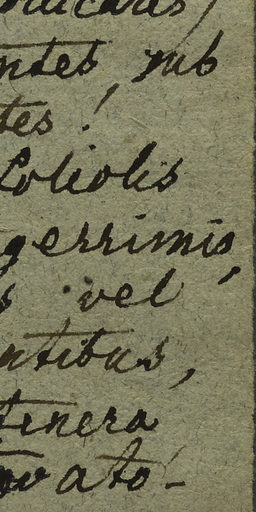 ntes, sub
tes!
foliolis
gerrimis,
s vel
ntibus,
tenera
ovato-